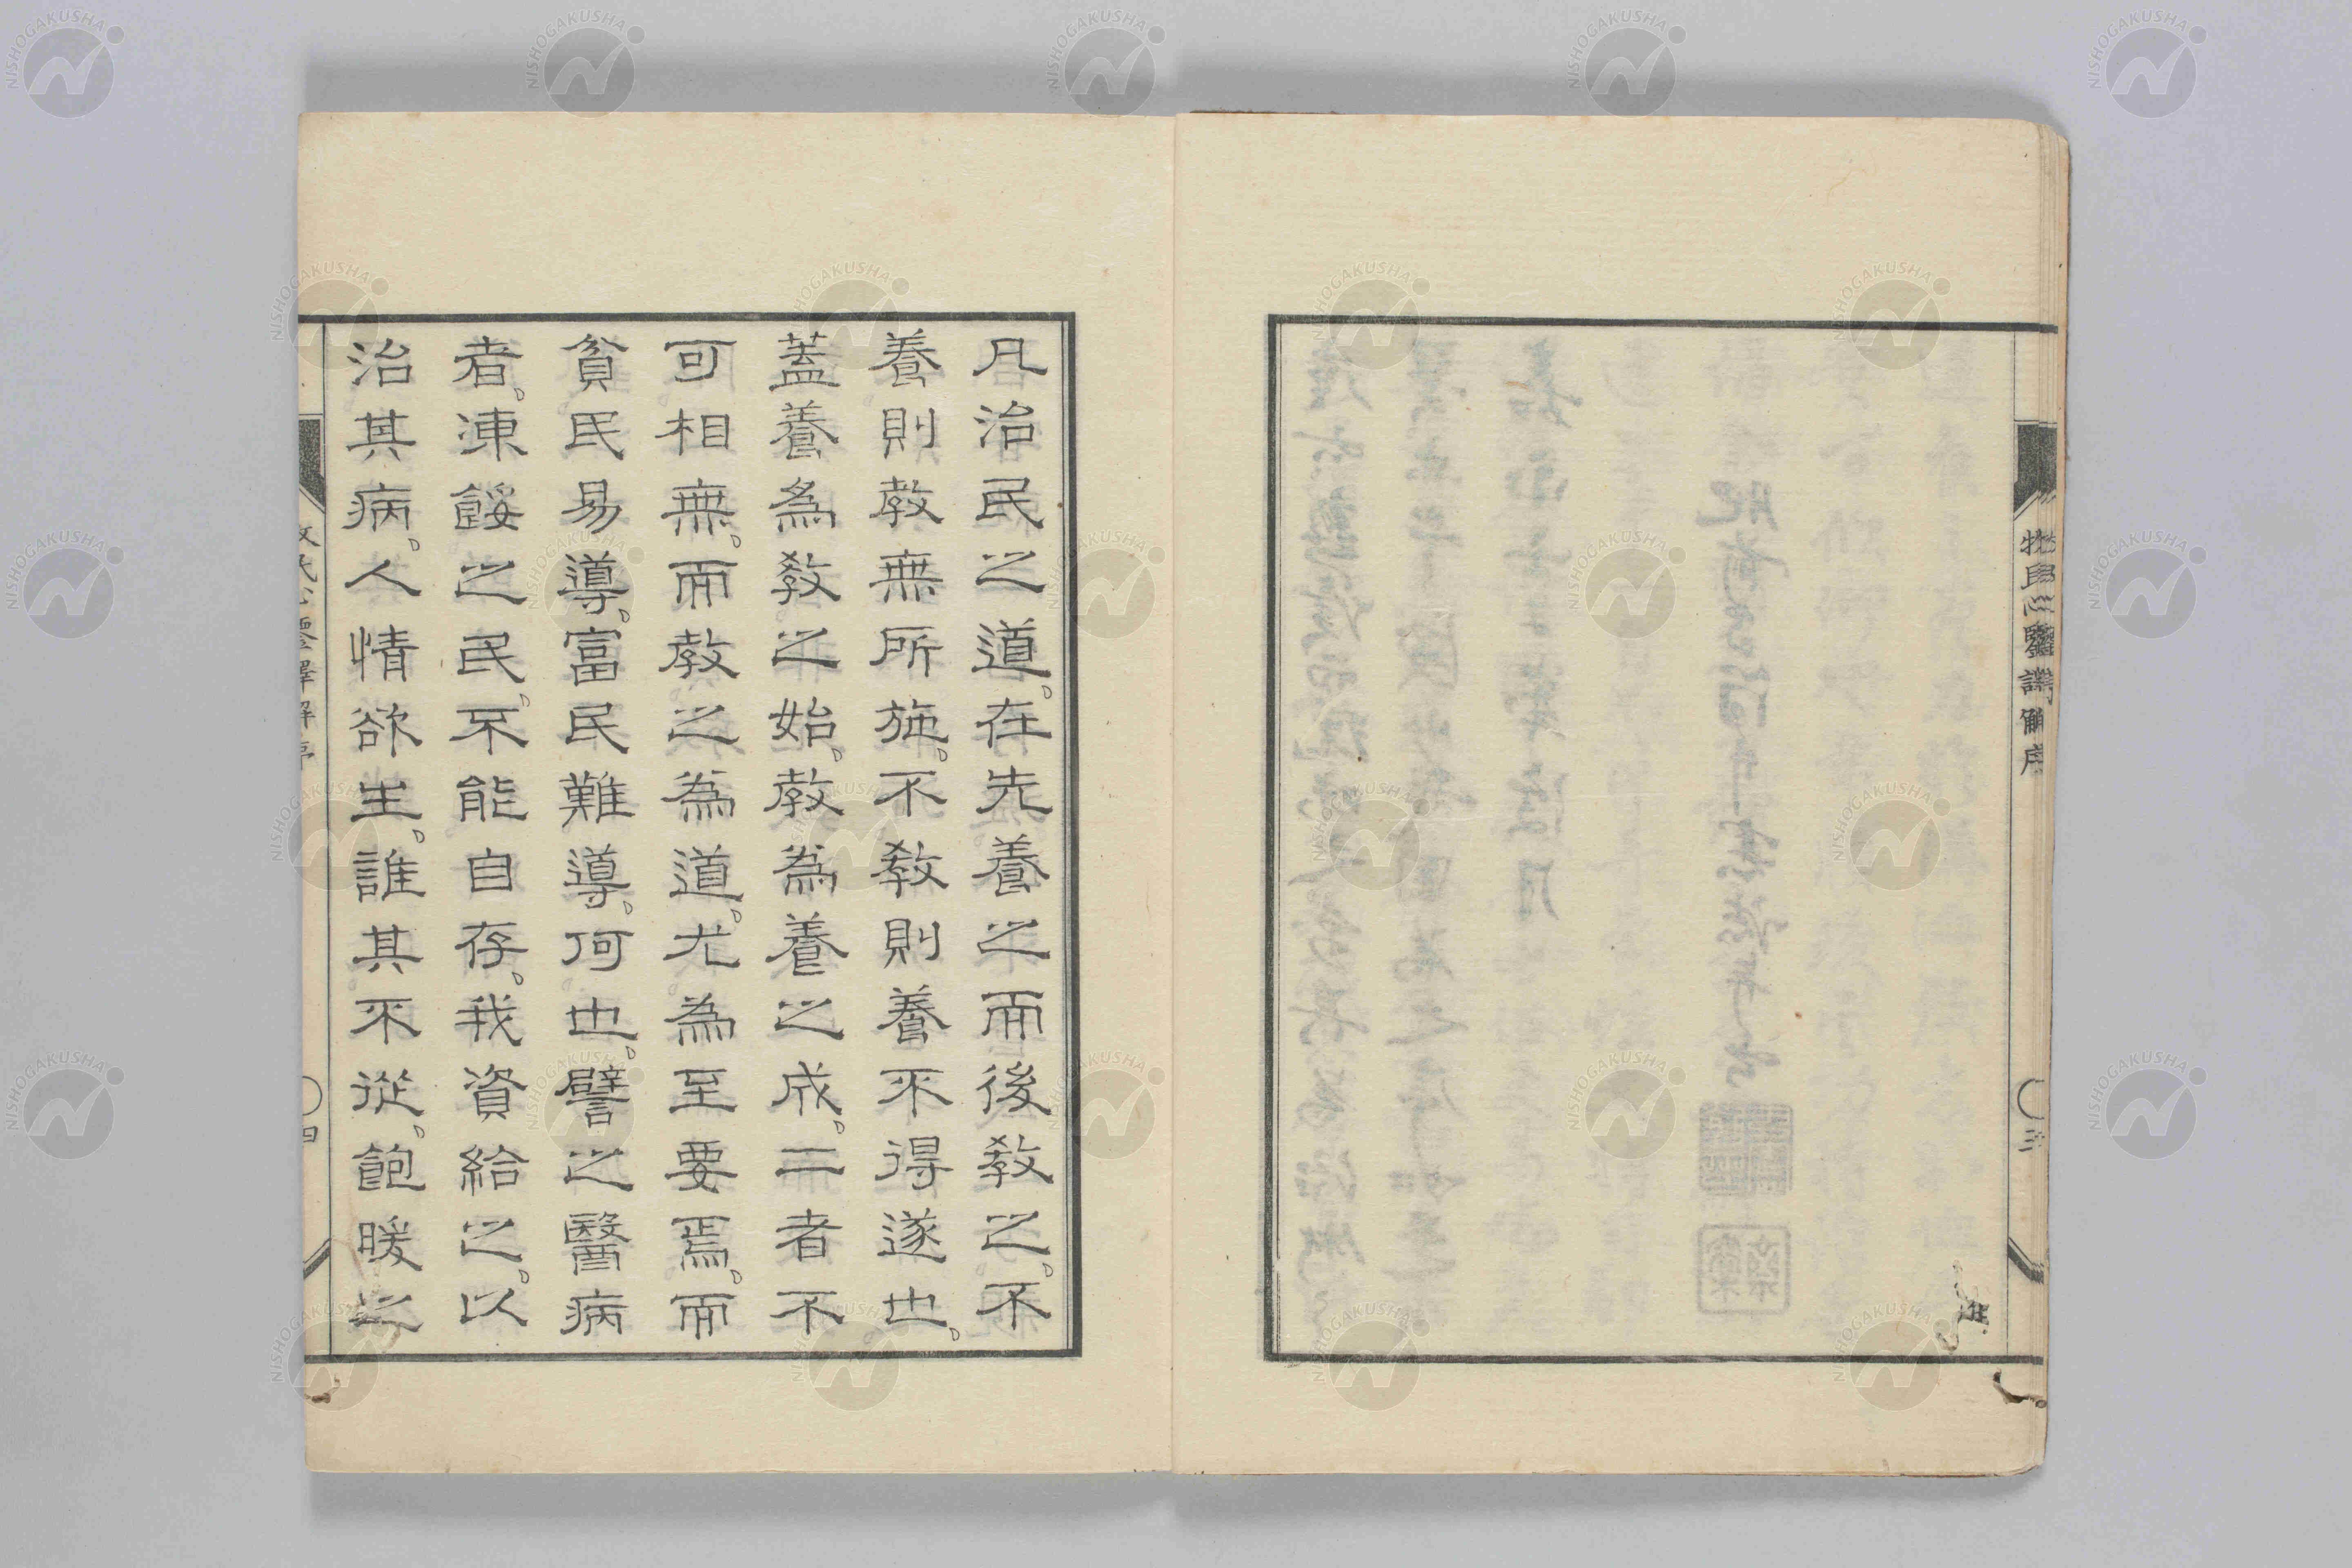 牧民心鑒譯解序
三
凡治民之道。在先養之而後教之。不
養則教無所施。不教則養不得遂也。
蓋養為教之始。教為養之成。二者不
可相無。而教之為道。尤為至要焉。而
貧民易導。富民難導。何也。譬之醫病
者。凍餒之民。不能自存。我資給之。以
治其病。人情欲生。誰其不從。飽暖之
牧民心鑒譯解序
四
NISHOGAKUSHA